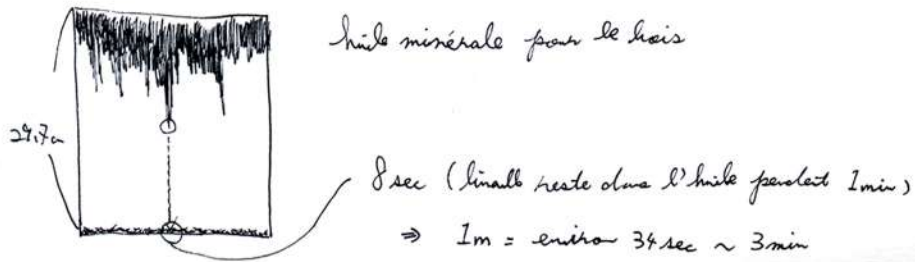 huile minérale pour le bois
29,7cm
8 sec ( reste dans l'huile pendant 1min)
⇒ 1m = environ 34sec ~ 3min